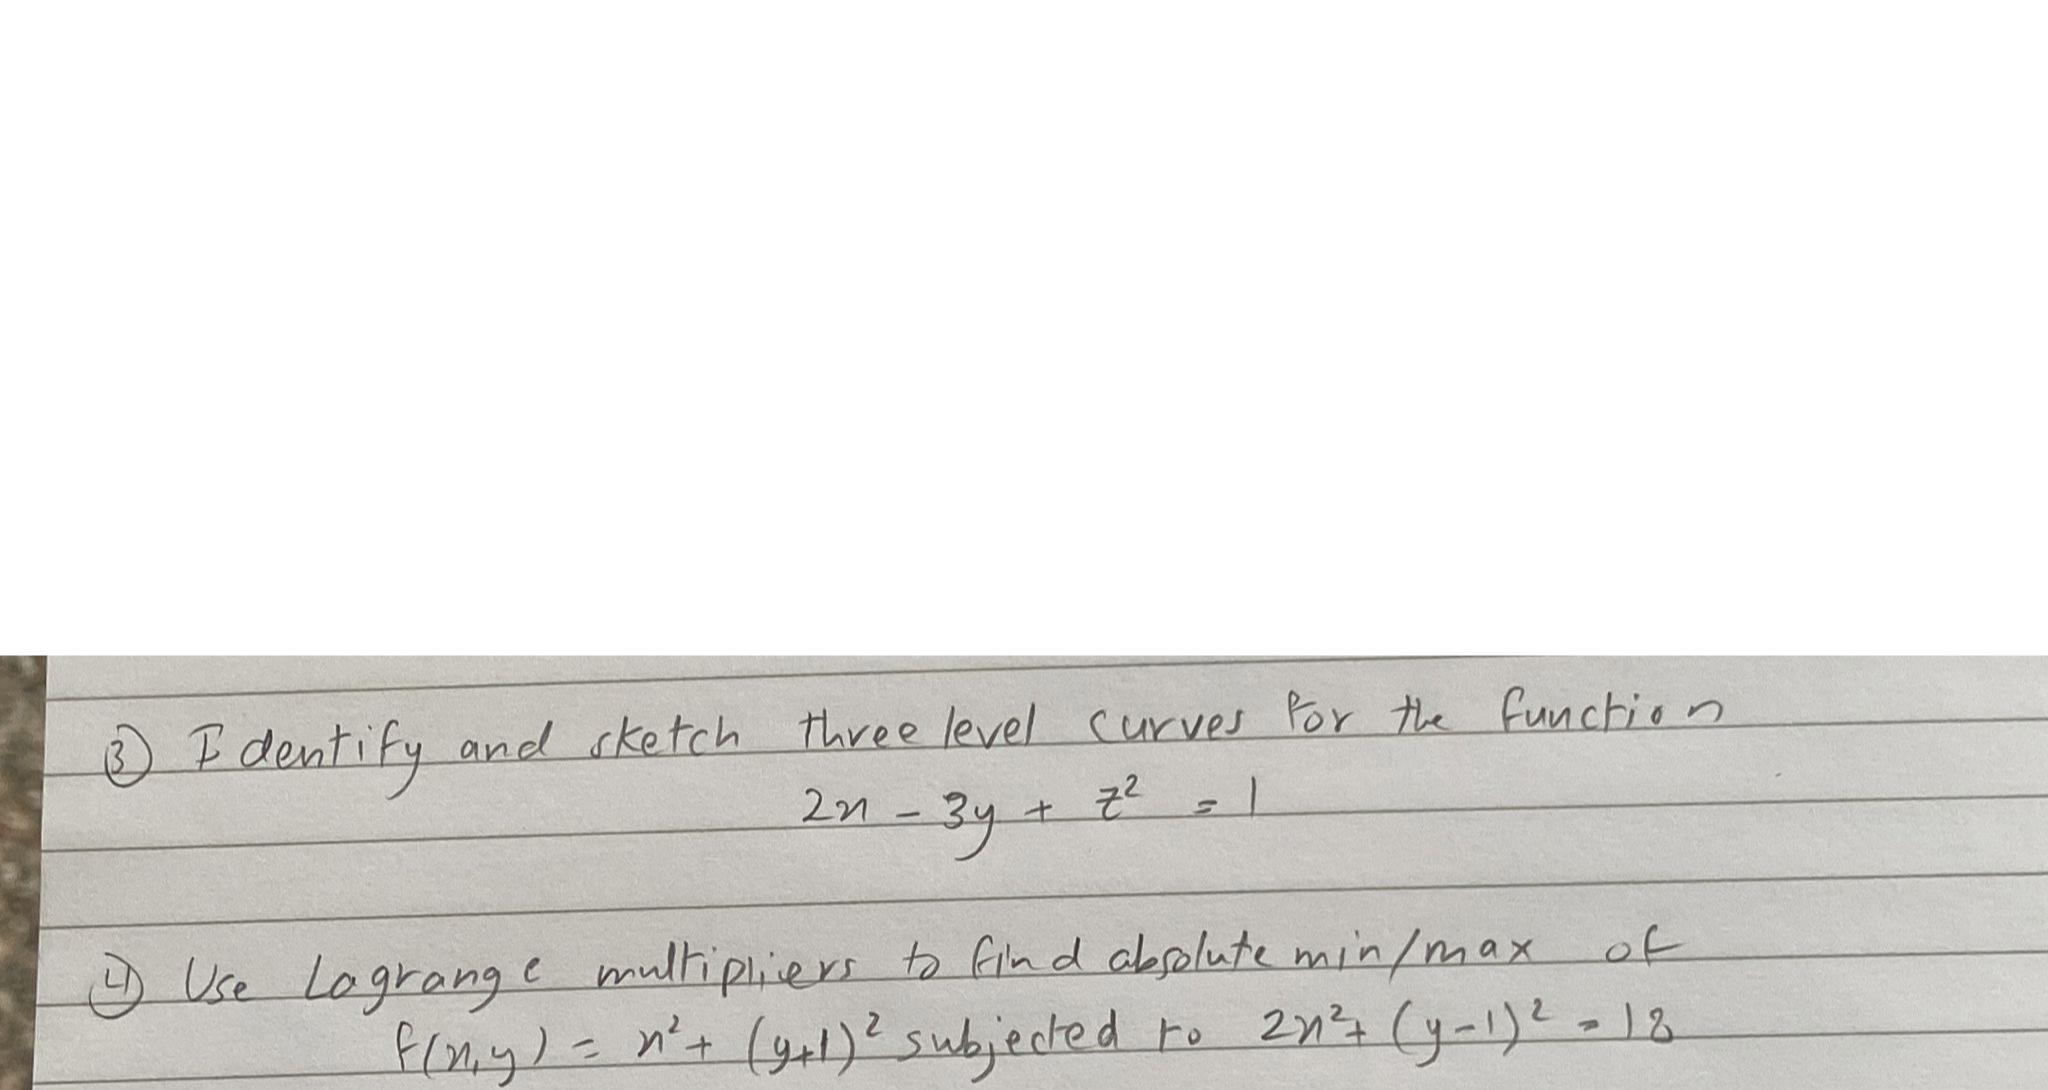 ③ Identify and sketch three level curves for the function
2x - 3y + z² = 1
④ Use Lagrange multipliers to find absolute min/max of
f(x,y) = x² + (y+1)² subjected to 2x² + (y-1)² = 18